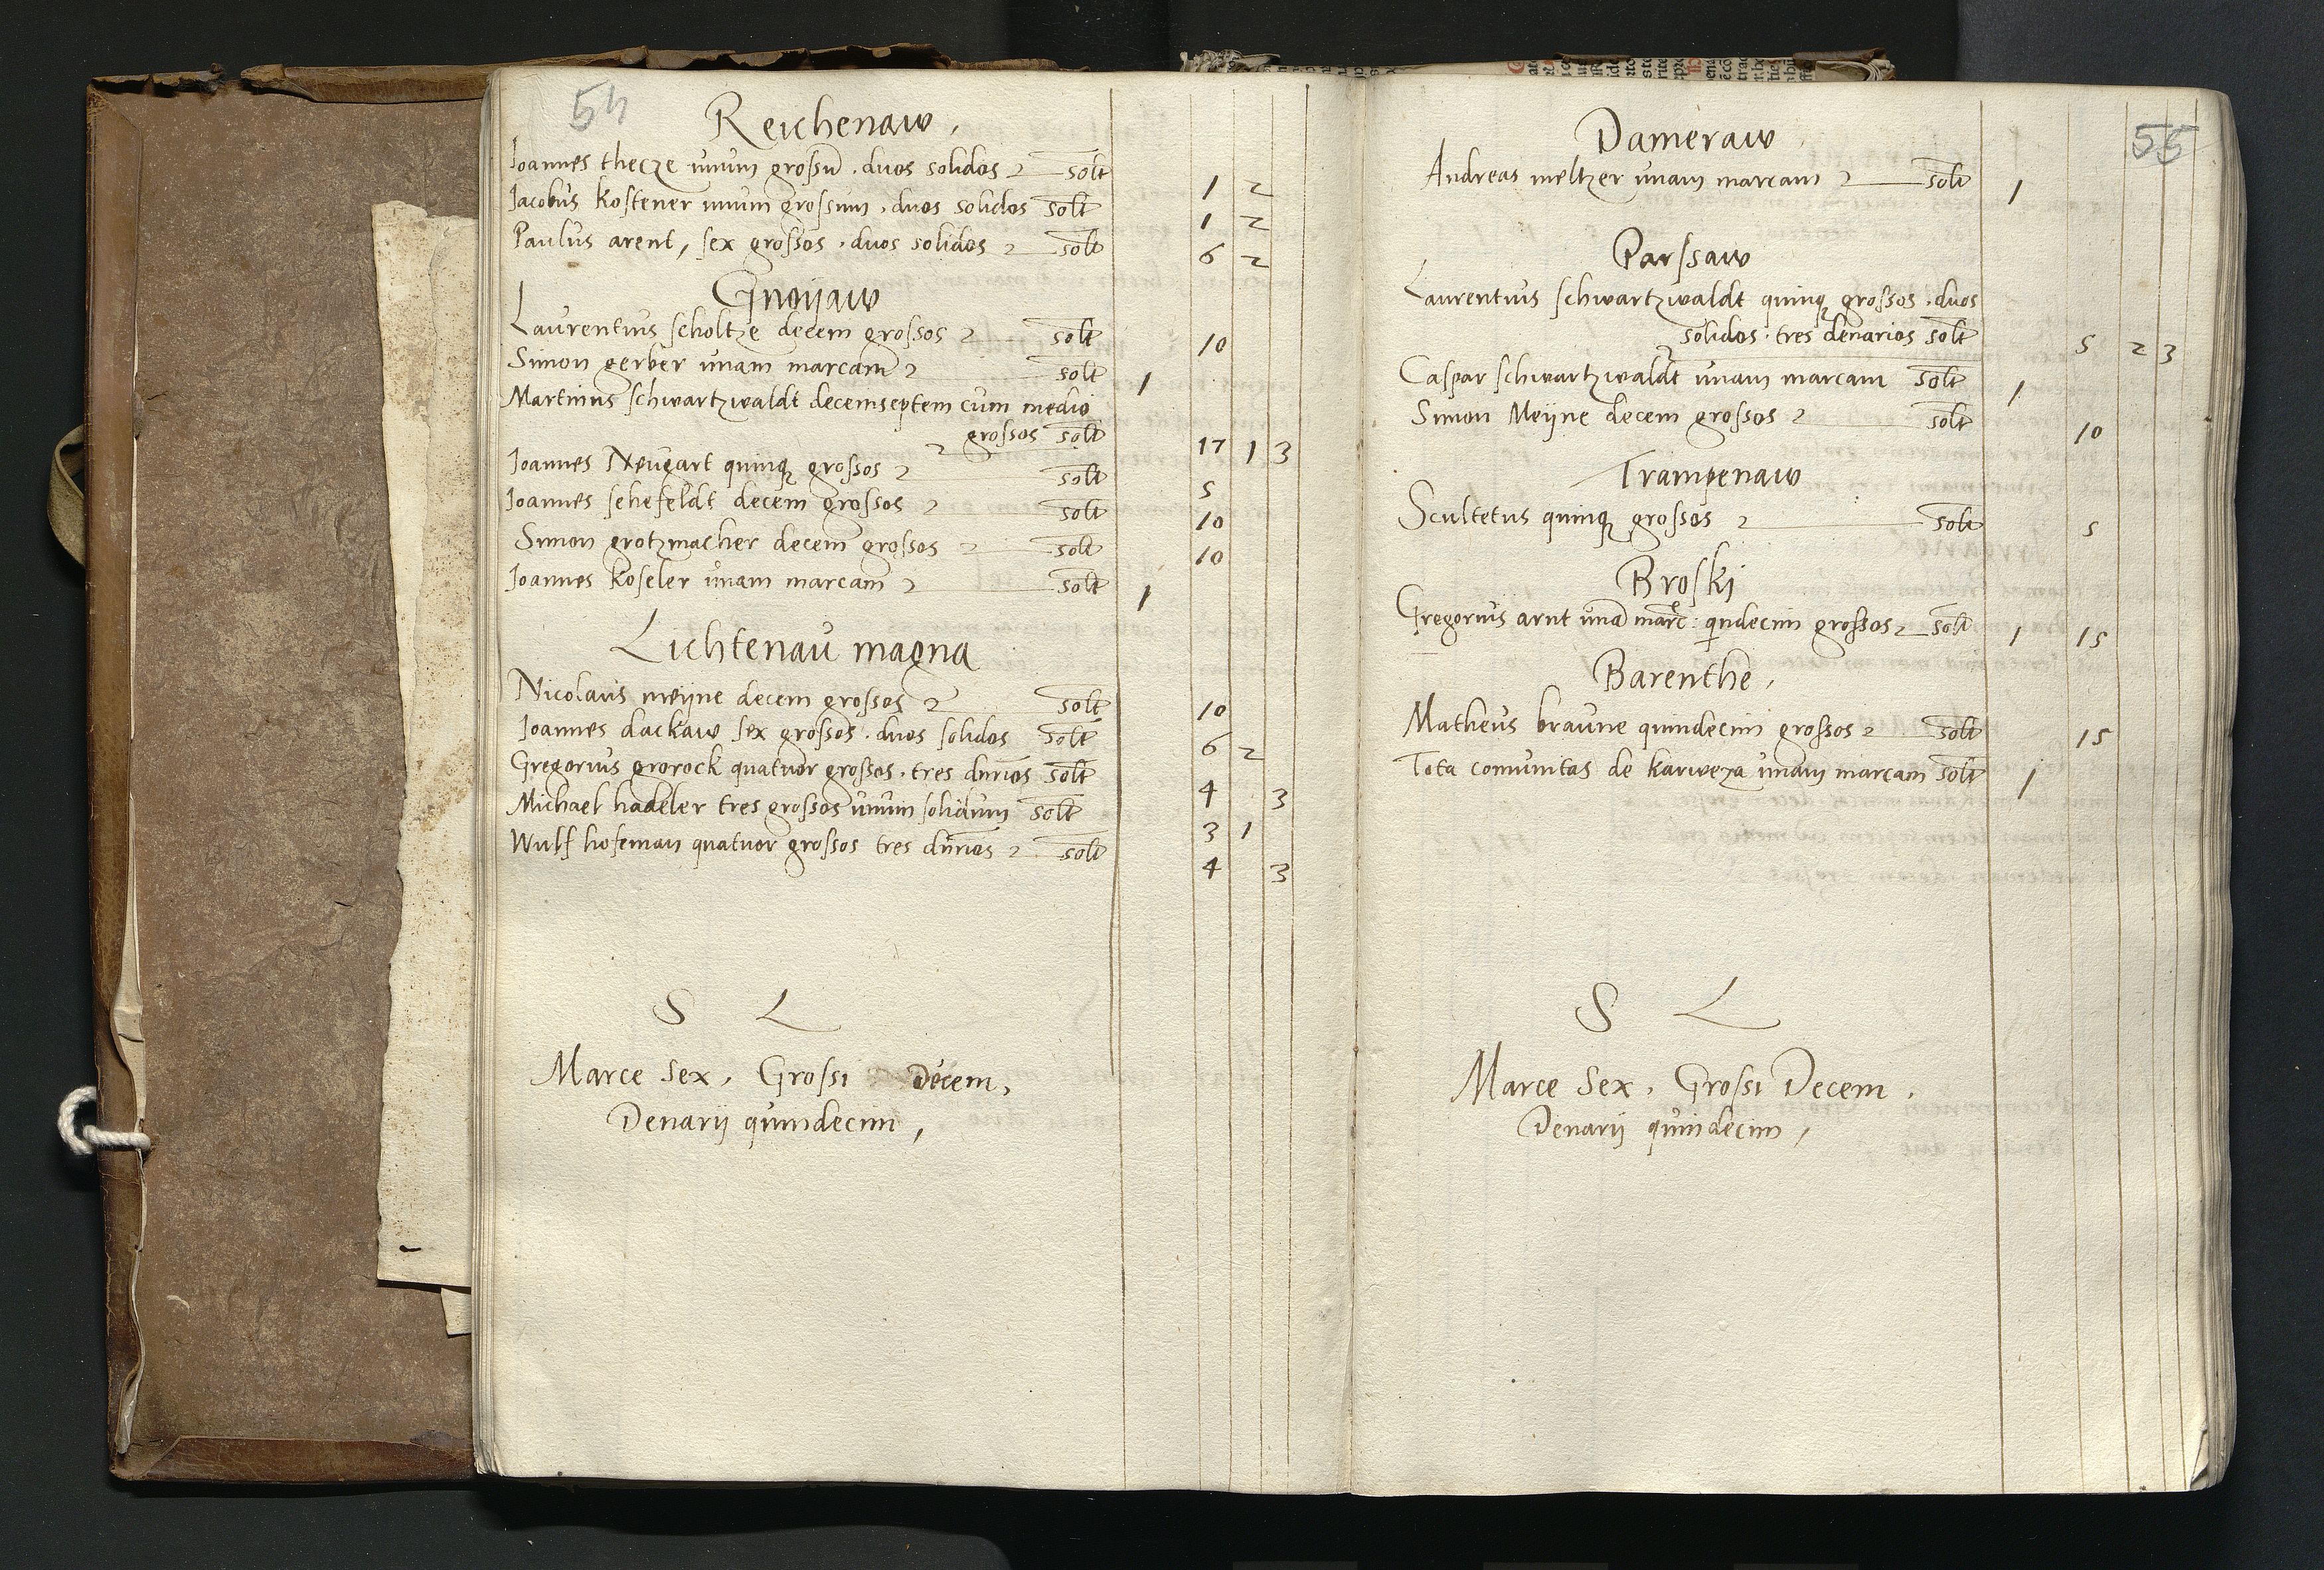 54
Reichenaw,
Ioannes thecze unum grossu . duos solidos solt 1 2
Iacobus kostener unum grossum . duos solidos solt 1 2
Paulus arent, sex grossos . duos solidos solt 6 2
Gnoijaw
Laurentius scholtze decem grossos solt 10
Simon gerber unam marcam solt 1
Martinus schwartzwaldt decemseptem cum medio
grossos solt 17 1 3
Ioannes Neugart quinq grossos solt 5
Ioannes sehefeldt decem grossos solt 10
Simon grotzmacher decem grossos solt 10
Ioannes koseler unam marcam solt 1
Lichtenau magna
Nicolaus meijne decem grossos solt 10
Ioannes dackaw sex grossos . duos solidos solt 6 2
Gregorius grorock quatuor grossos . tres dnrios solt 4 3
Michael hadeler tres grossos unum solidum solt 3 1
Wulf hofeman quatuor grossos tres dnrios solt 4 3
S L
Marce Sex, Grossi Decem,
Denarij quindecim,
55
Dameraw
Andreas meltzer unam marcam solt 1
Parssaw
Laurentius schwartzwaldt quinq grossos . duos
solidos . tres denarios solt 5 2 3
Caspar schwartzwaldt unam marcam solt 1
Simon Meijne decem grossos solt 10
Trampenaw
Scultetus quinq grossos solt 5
Broski
Gregorius arnt una marc : qindecim grossos solt 1 15
Barenthe,
Matheus braune quindecim grossos solt 15
Tota comunitas de karweza unam marcam solt 1
S L
Marce Sex, Grossi Decem,
Denarij quindecim,